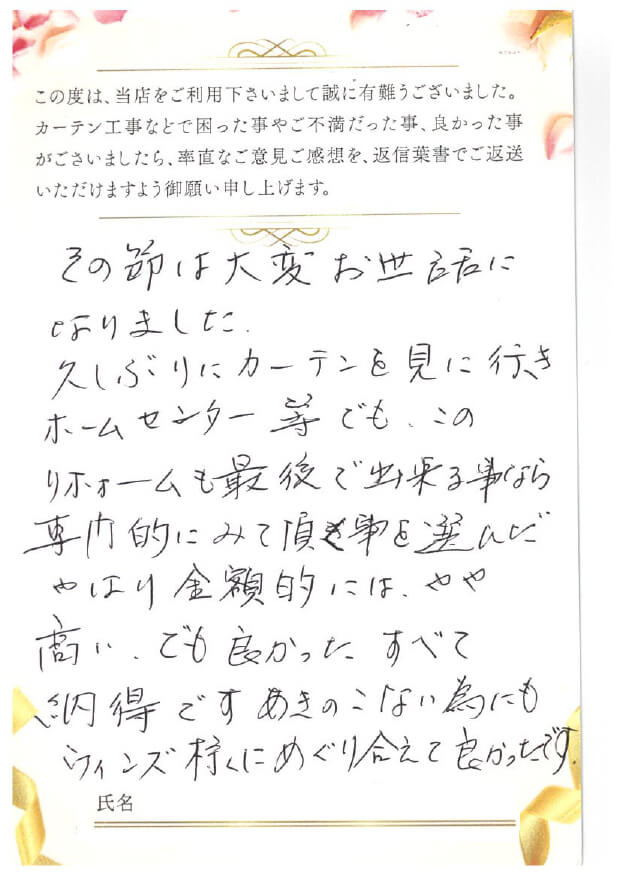 この度は、当店をご利用下さいまして誠に有難うございました。
カーテン工事などで困った事やご不満だった事、良かった事
がございましたら、率直なご意見ご感想を、返信葉書でご返送
いただけますよう御願い申し上げます。
その節は大変お世話に
なりました.
久しぶりにカーテンを見に行き
ホームセンター等でも、この
リホォームも最後で出来る事なら
専門的にみて頂き事を選んだ
やはり金額的には、やや
高い、でも良かった すべて
納得です あきのこない為にも
ウィンズ様にめぐり合えて良かったです.
氏名